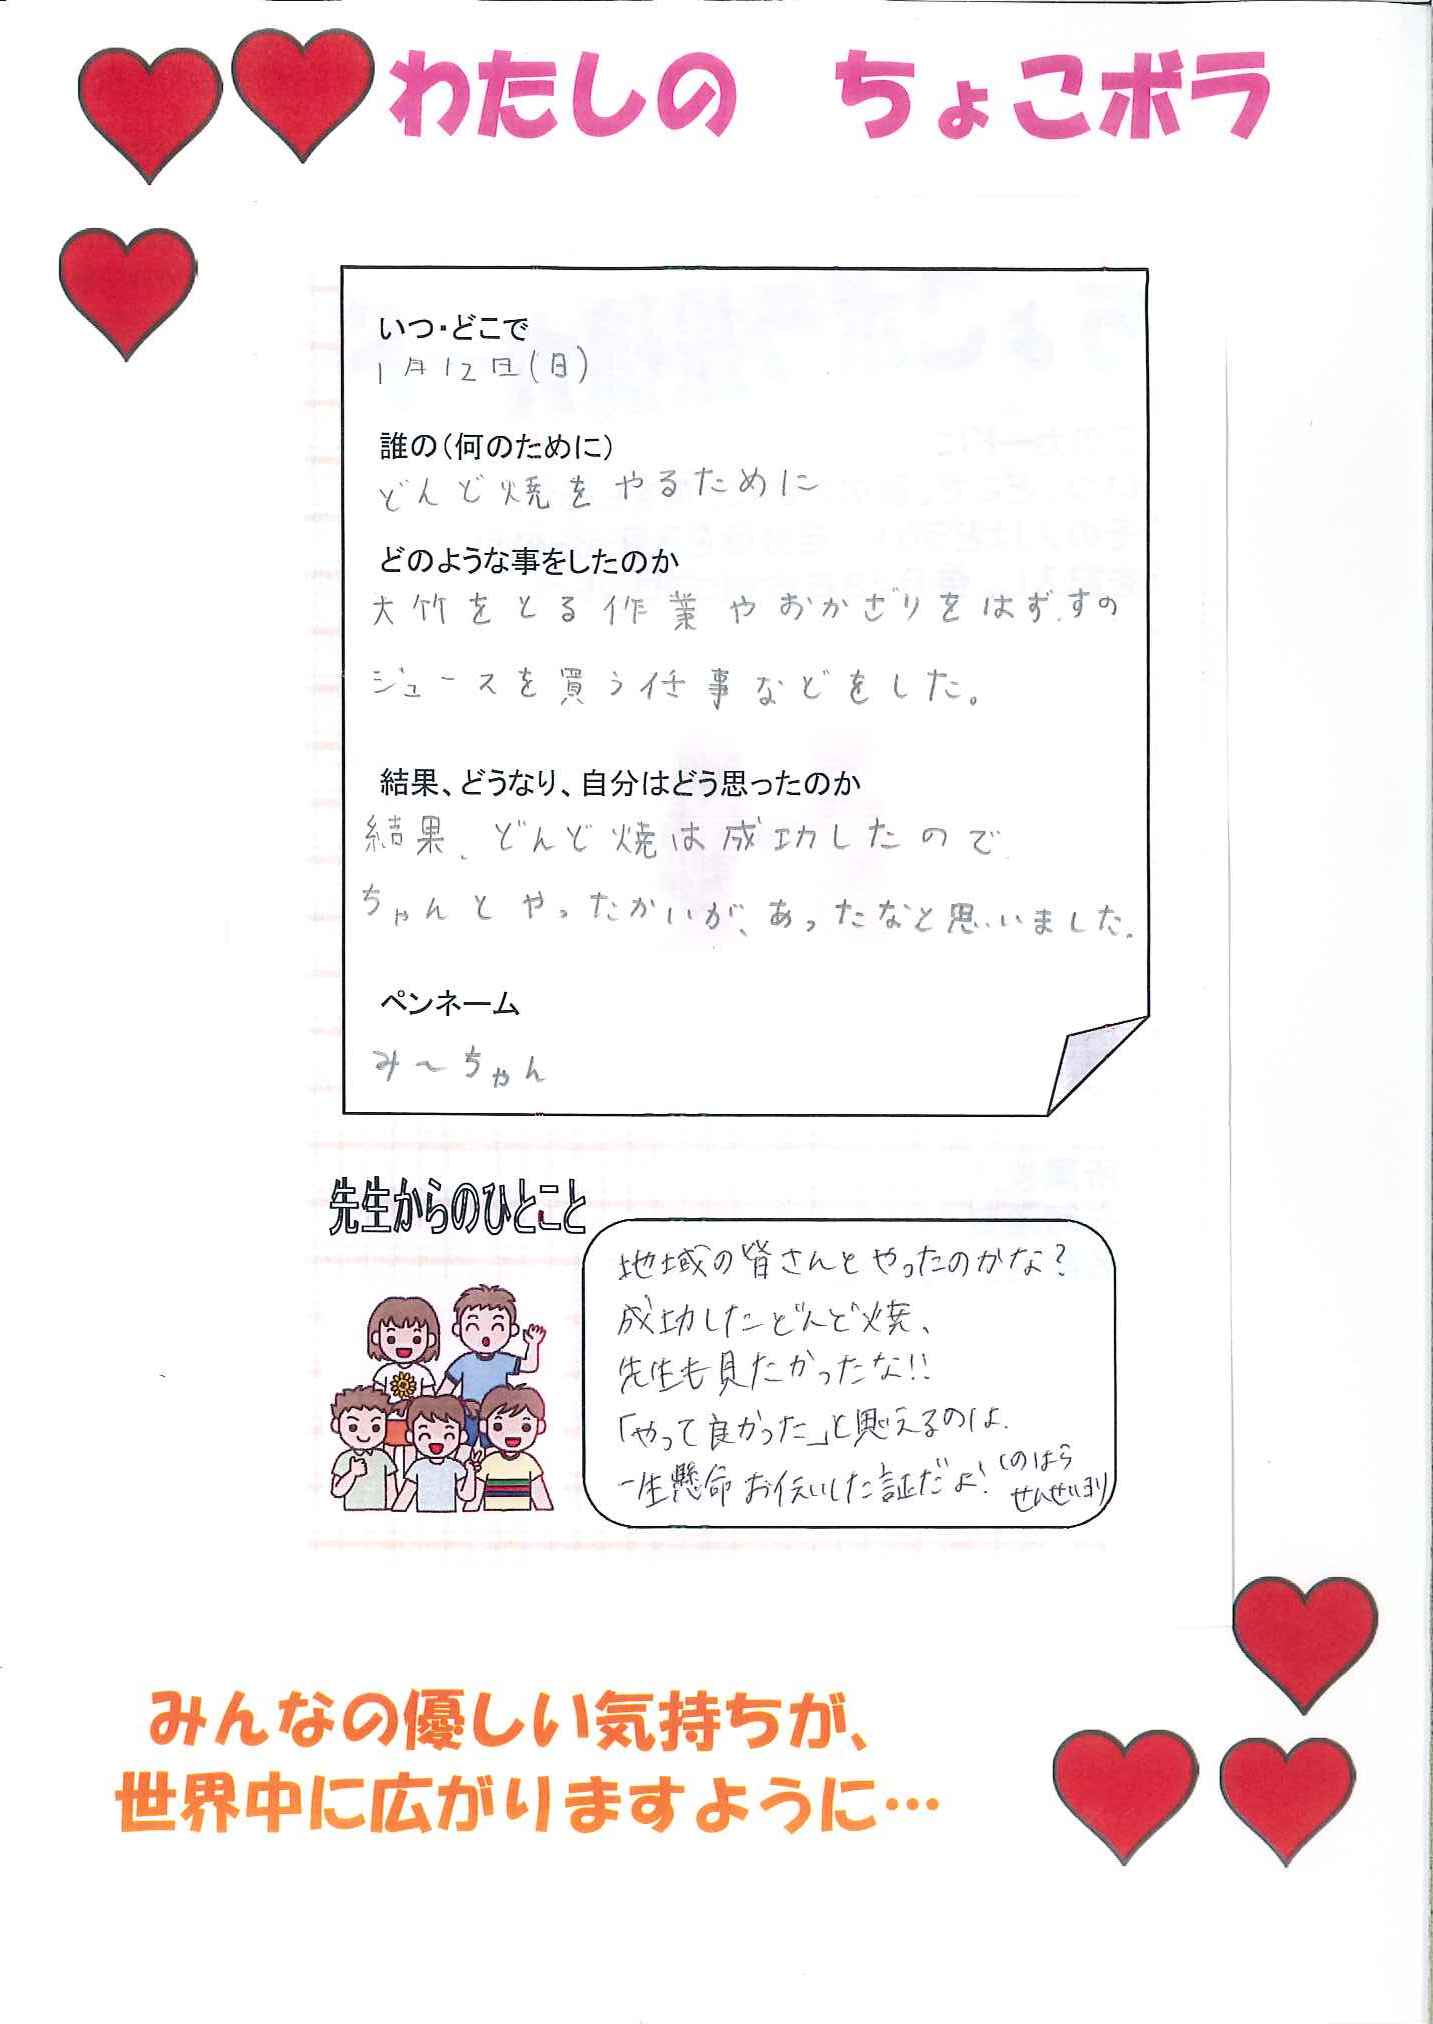 わたしの　ちょこボラ
いつ・どこで
1月12日(日)
誰の(何のために)
どんど焼をやるために
どのような事をしたのか
大竹をとる作業やおかざりをはずすの
ジュースを買う仕事などをした。
結果、どうなり、自分はどう思ったのか
結果、どんど焼は成功したので
ちゃんとやったかいが、あったなと思いました。
ペンネーム
み〜ちゃん
先生からのひとこと
地域の皆さんとやったのかな?
成功したどんど焼、
先生も見たかったな!!
「やって良かった」と思えるのは、
一生懸命お伝いした証だよ!(のはら
せんせいヨリ)
みんなの優しい気持ちが、
世界中に広がりますように…